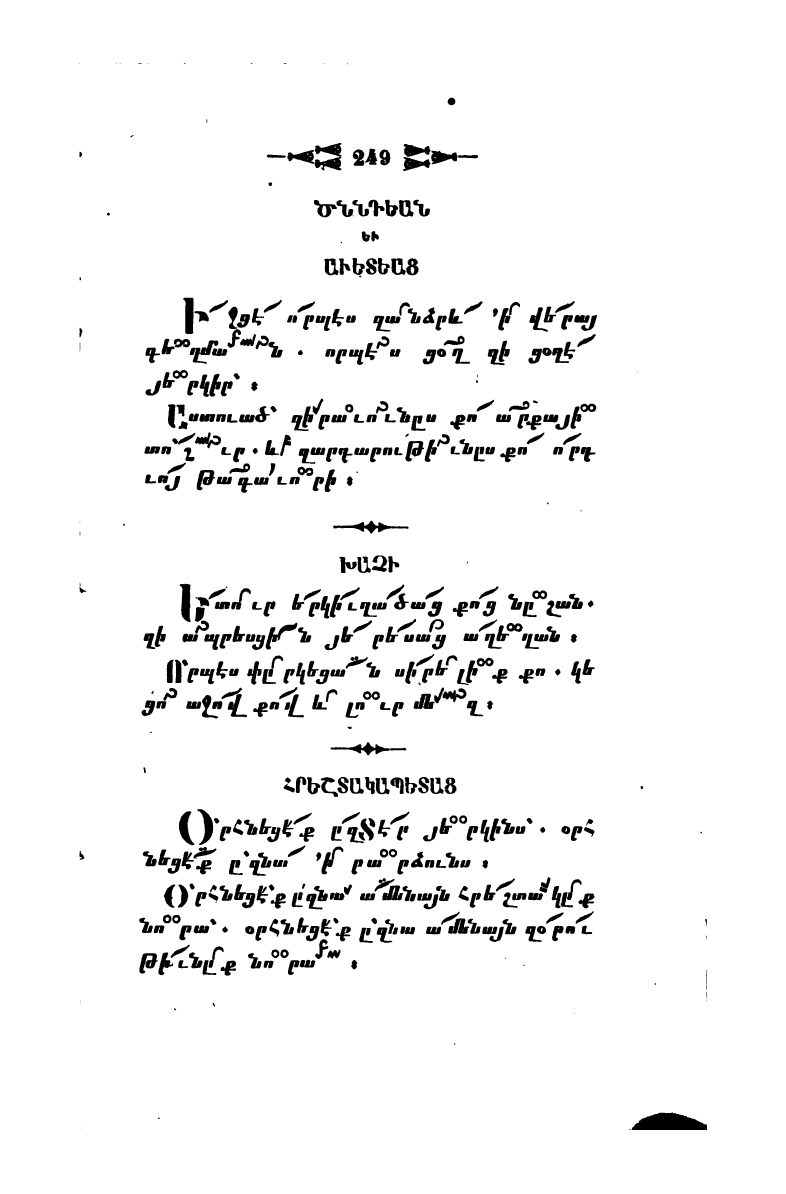 249
ԾՆՆԴԵԱՆ
ԵՒ
ԱՒԵՏԵԱՑ
Իջցէ որպէս զանձրև ՚ի վերայ
գեղման . որպէս ցօղ զի ցօղէ
յերկիր՝ ։
Աստուած՝ զիրաւունըս քո արքայի
տո՝ւր . և զարդարութիւնըս քո որդ
ւոյ թագաւորի ։
ԽԱՉԻ
Ետուր երկիւղածաց քոց նըշան .
զի ապրեսցին յերեսաց աղեղան ։
Ո՝րպէս փրկեցան սիրելիք քո . կե
ցո աջով քով և լուր մեզ ։
ՀՐԵՇՏԱԿԱՊԵՏԱՑ
Օ՝րՀնեցէք ըզՏէր յերկինս՝ . օրՀ
նեցէք ը՝զնա ՚ի բարձունս ։
Օ՝րՀնեցէ՝ք ըզնա ամենայն Հրեշտակք
նորա՝ . օրՀնեցէ՝ք ը՝զնա ամենայն զօրու
թիւնք նորա ։